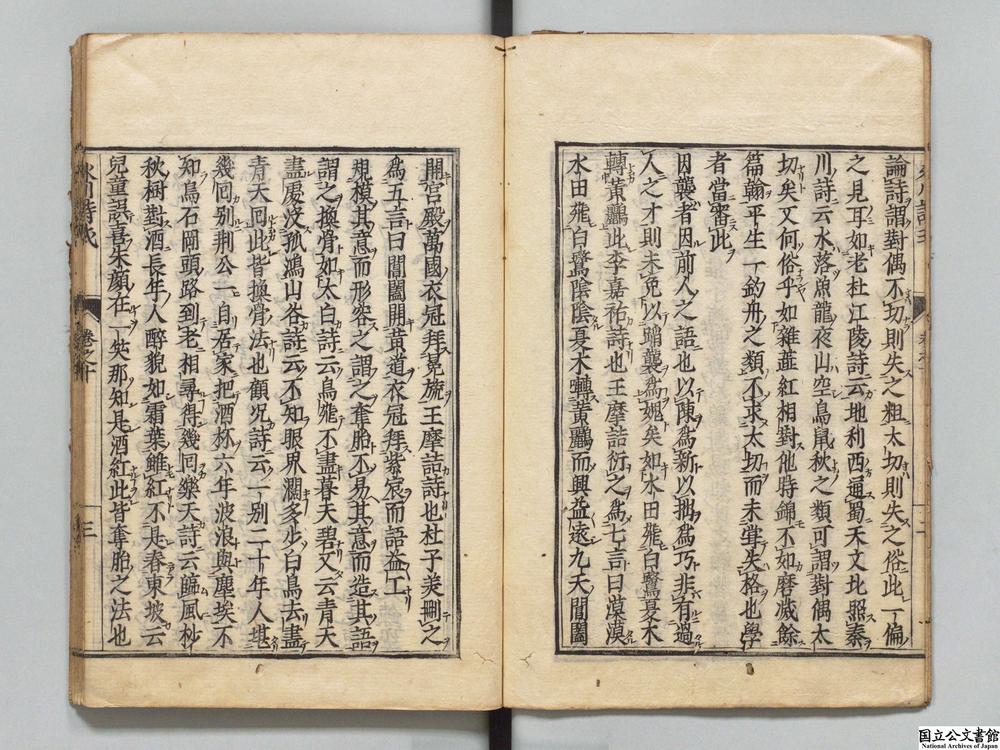 論詩謂對偶不切則失之粗太切則失之俗此一偏
之見耳如老杜江陵詩云地利西通蜀天文北照秦
川詩云水落魚龍夜山空鳥鼠秋之類可謂對偶太
切矣又何俗乎如雜蘂紅相對他時錦不如磨滅餘
篇翰平生一釣舟之類不求太切而未嘗失格也學
者當審此
因襲者因前人之語也以陳為新以拙為巧非有過
人之才則未免以蹈襲為媿矣如水田飛白鷺夏木
轉黃鸝此李嘉祐詩也王摩詰衍之為七言曰漠漠
水田飛白鷺陰陰夏木囀黃鸝而興益遠九天閶闔
開宮殿萬國衣冠拜冕旒王摩詰詩也杜子美刪之
為五言曰閶闔開黃道衣冠拜紫宸而語益工
規模其意而形容之謂之奪胎不易其意而造其語
謂之換骨如太白詩云鳥飛不盡暮天碧又云青天
盡處沒孤鴻山谷詩云不知眼界濶多少白鳥去盡
青天回此皆換骨法也顧況詩云一別二十年人堪
幾回別荆公一自居家把酒杯六年波浪與塵埃不
知烏石岡頭路到老相尋得幾回樂天詩云臨風杪
秋樹對酒長年人醉貌如霜葉雖紅不是春東坡云
兒童誤喜朱顏在一笑那知是酒紅此皆奪胎之法也
卷之十
三
国立公文書館
National Archives of Japan